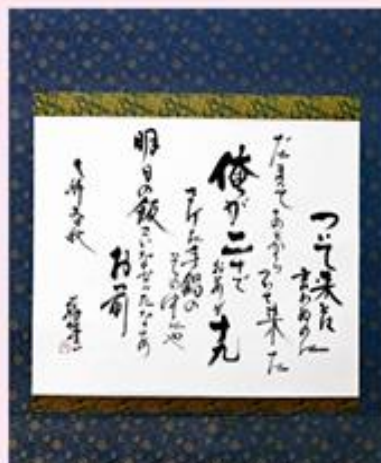 ついて来いとは
言わぬのに
だまってあとからついて来た
俺が二十で
おまえが十九
さげた手鍋の
その中にゃ
明日の飯さえなかったなあ
お前
夫婦春秋